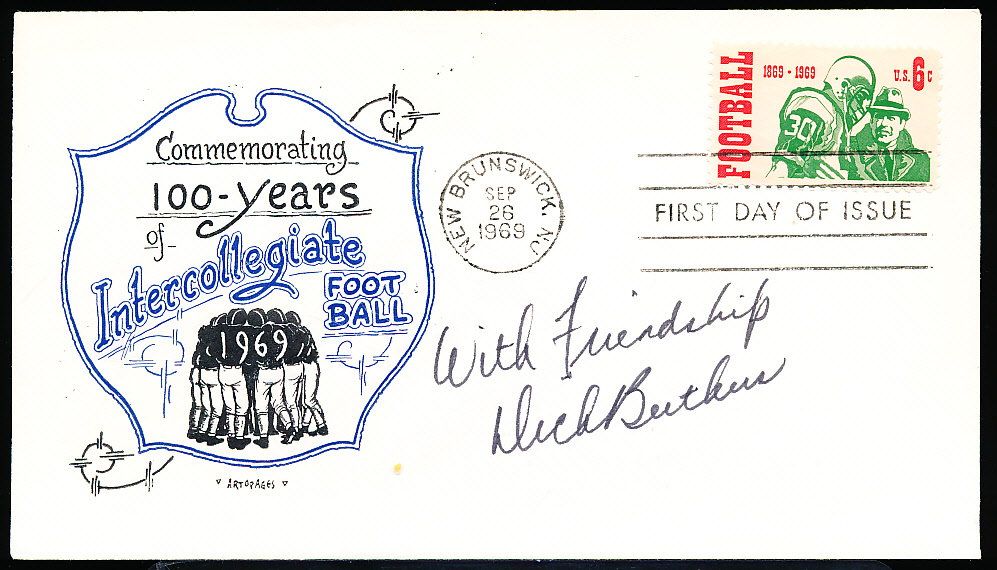 Commemorating
100-years
of-
Intercollegiate
FOOT
BALL
1969
ARTOPAGES
NEW BRUNSWICK, NJ
SEP
26
1969
FOOTBALL
1869 · 1969
U.S. 6c
30
FIRST DAY OF ISSUE
With Friendship
Dick Butkus